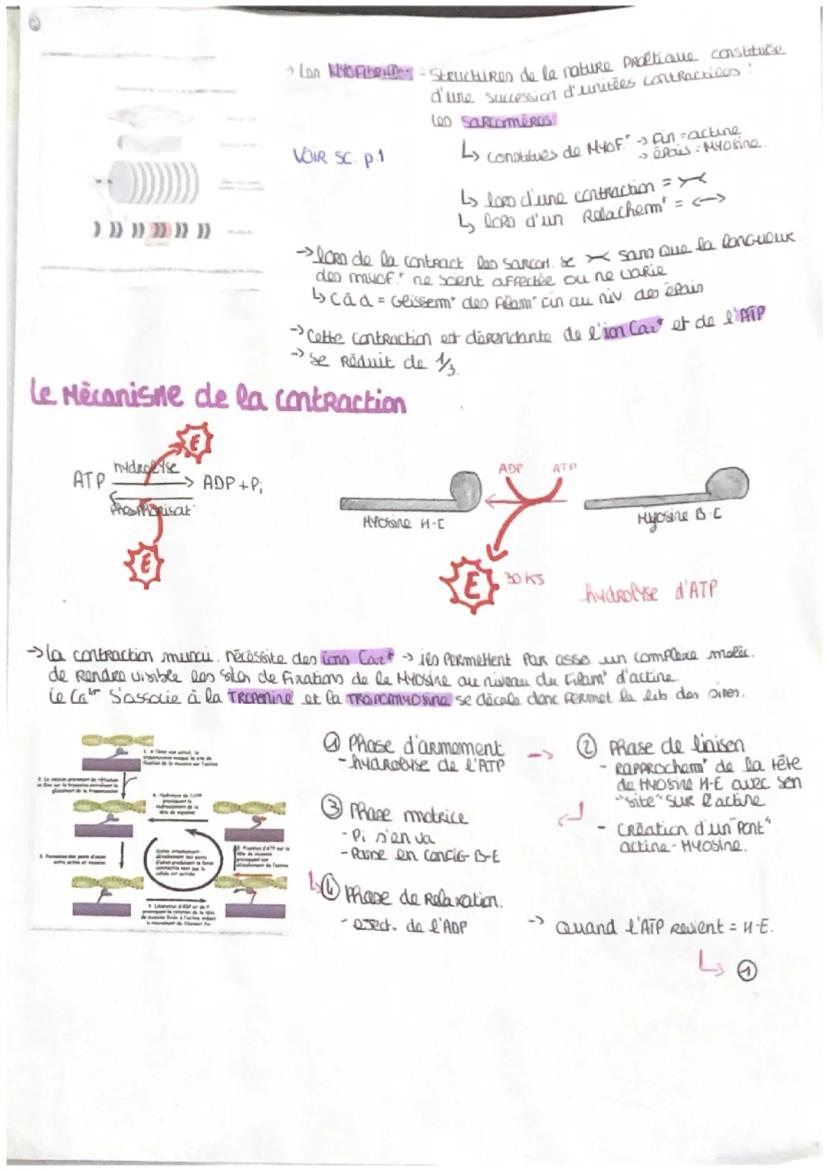 → Les MYOFibrilles = Structures de la nature protéique constituée
d'une succession d'unitées contractiles :
les sarcomères
VOIR SC. p.1
↳ constitués de MYOF.^t → Fin = actine
→ épais = Myosine.
↳ lors d'une contraction = >-<
↳ lors d'un Relachem^t = <->
→ lors de la contract les sarcom. se >-< sans que la longueur
des myof.^t ne soient affectée ou ne varie
↳ càd = Glissem^t des Filam^t fin au niv. des épais
→ Cette contraction est dépendante de l'ion Ca2+ et de l'ATP
→ se Réduit de 1/3.
Le Mécanisme de la contraction
E
ATP hydrolyse ADP + Pi
Phosphorisat°
E
ADP ATP
Myosine H-E
Myosine B-E
E 30 KJ
hydrolyse d'ATP
→ la contraction muscu. nécéssite des ions Ca2+ → ils permettent par asso. un complexe moléc.
de rendre visible les sites de fixations de la Myosine au niveau du Filam^t d'actine.
Le Ca2+ s'associe à la Troponine et la Tropomyosine se décale donc permet la lib des sites.
① Phase d'armement →
- hydrolyse de l'ATP
② Phase de liaison
- Rapprochem^t de la tête
de Myosine H-E avec son
"site" sur l'actine
- Création d'un "Pont"
actine - Myosine.
③ Phase motrice
- Pi s'en va
- Passe en config- B-E
↳ ④ Phase de Relaxation.
- Dsect. de l'ADP
→ Quand l'ATP Revient = H-E.
↳ ①